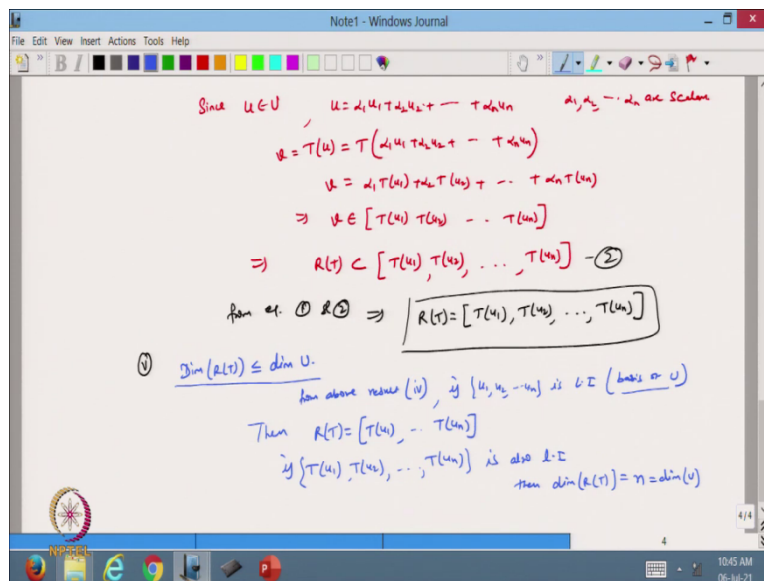 Note1 - Windows Journal
File Edit View Insert Actions Tools Help
Since u ∈ U , u = α₁u₁ + α₂u₂ + --- + αₙuₙ α₁, α₂ --- αₙ are Scalars
v = T(u) = T(α₁u₁ + α₂u₂ + - - + αₙuₙ)
v = α₁T(u₁) + α₂T(u₂) + -- + αₙT(uₙ)
⇒ v ∈ [T(u₁) T(u₂) - -- T(uₙ)]
⇒ R(T) ⊂ [T(u₁), T(u₂), ..., T(uₙ)] - ②
from eq. ① & ② ⇒ R(T) = [T(u₁), T(u₂), ..., T(uₙ)]
ⓥ Dim(R(T)) ≤ dim U.
from above result (iv), if {u₁, u₂ --- uₙ} is L.I (basis of U)
Then R(T) = [T(u₁), -- T(uₙ)]
if {T(u₁), T(u₂), ..., T(uₙ)} is also L.I
then dim(R(T)) = n = dim(U)
4/4
4
NPTEL
10:45 AM
06-Jul-21